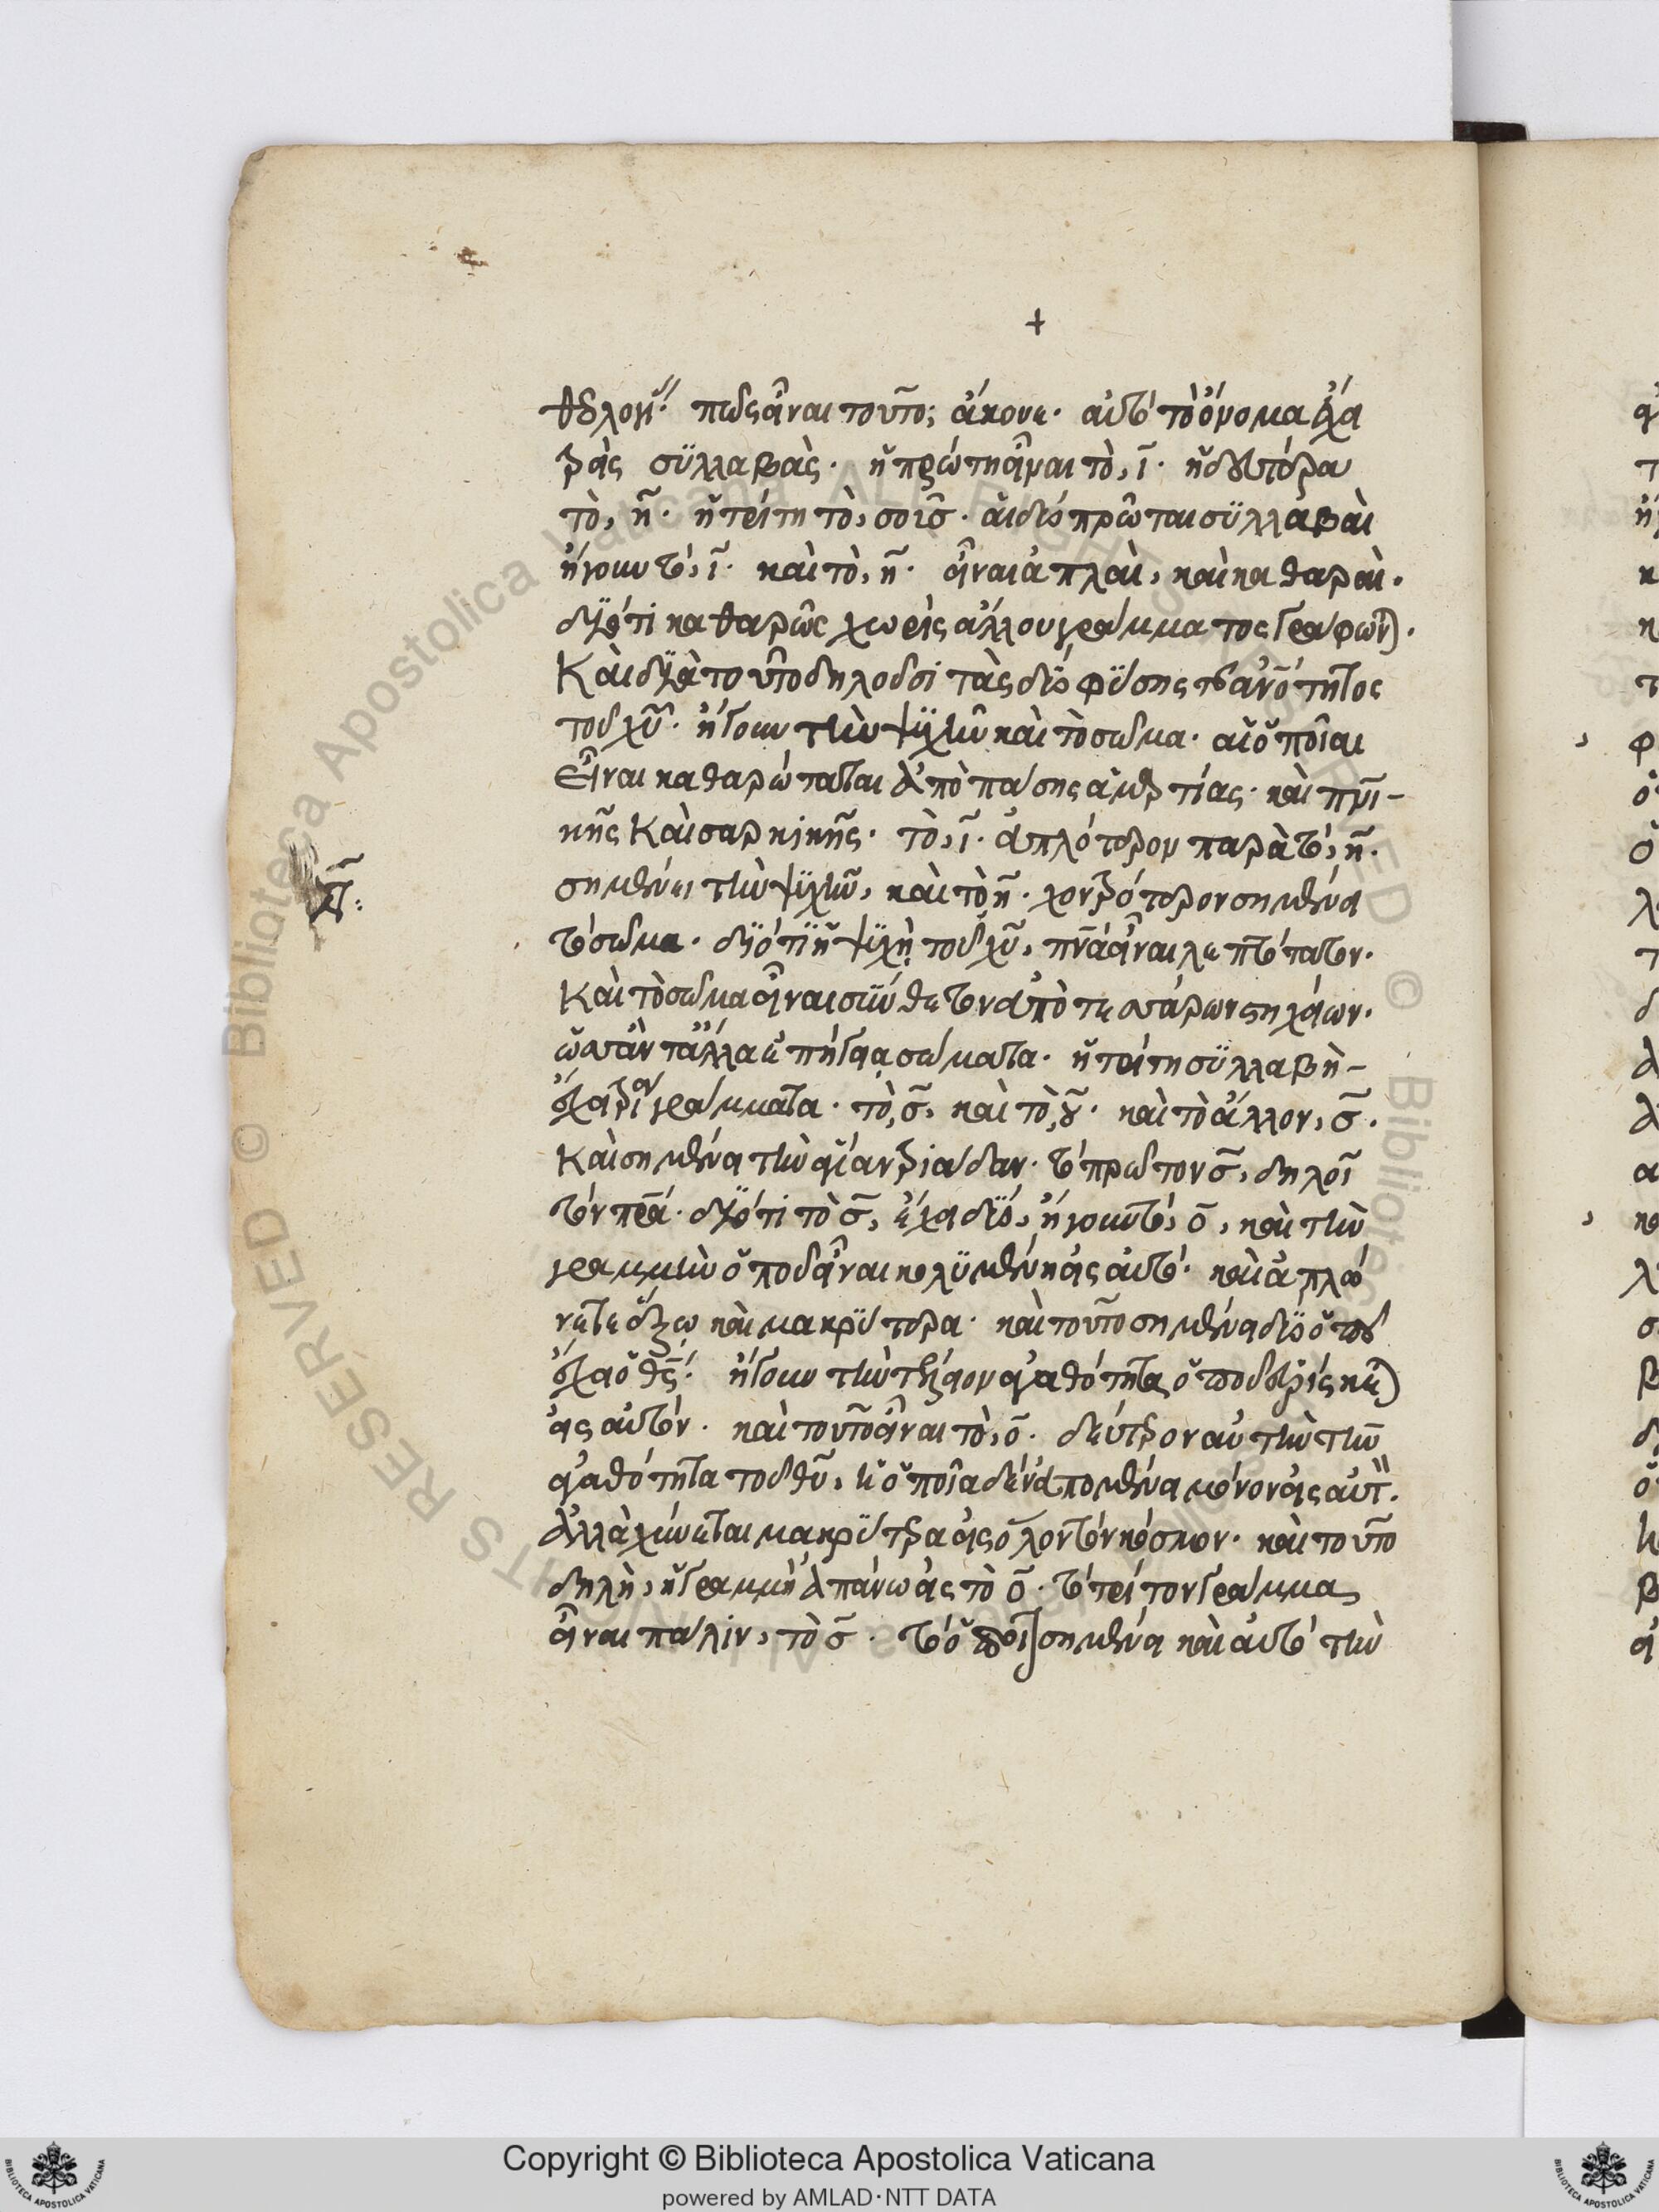 +
πῶς εἶναι τοῦτο; ἄκουε· αὐτὸ τὸ ὄνομα ἔχει
τρεῖς συλλαβὰς· ἡ πρώτη εἶναι τὸ, ῑ· ἡ δευτέρα
τὸ, η̄· ἡ τρίτη τὸ, σοῦς· αἱ δύο πρῶται συλλαβαὶ
ἤγουν τὸ, ῑ· καὶ τὸ, η̄· εἶναι ἁπλαὶ, καὶ καθαραὶ·
διότι καθαρῶς χωρὶς ἄλλου γράμματος
Καὶ διὰ τοῦτο δηλοῦσι τὰς δύο φύσης τῆς ἀνο̄τητος
τοῦ χῦ· ἤγουν τὴν ψυχὴν καὶ τὸ σῶμα· αἱ ὁποῖαι
εἶναι καθαρώταται ἀπὸ πάσης ἁμαρτίας· καὶ πνι-
κῆς καὶ σαρκικῆς· τὸ, ῑ· ἁπλότερον παρὰ τὸ, η̄·
σημαίνει τὴν ψυχὴν, καὶ τὸ η̄· χονδρότερον σημαίνει
τὸ σῶμα· διότι ἡ ψυχὴ τοῦ χῦ, πνᾶ εἶναι λεπτότατον·
Καὶ τὸ σῶμα εἶναι σύνθετον ἀπὸ τεσσάρων στηχείων·
ὡσὰν τἄλλα ἐπήγεια σώματα· ἡ τρίτη συλλαβὴ-
ἔχει τρία γράμματα· τὸ, σ̄, καὶ τὸ, ȣ̄· καὶ τὸ ἄλλον, σ̄·
Καὶ σημαίνει τὴν ἁγίαν τριάδαν· τὸ πρῶτον σ̄, δηλοῖ
τὸν πρ̄α· διότι τὸ σ̄, ἔχει δύο, ἤγουν τὸ, ο̄, καὶ τὴν
γραμμὴν ὁποῦ εἶναι κολυμένη εἰς αὐτὸ· καὶ ἁπλώ
νεται ἔξω καὶ μακρύτερα· καὶ τοῦτο σημαίνει δύο ὁποῦ
ἔχει ὁ θς̄· ἤγουν τὴν τελείαν ἀγαθότητα ὁποῦ εὑρίσκεται
εἰς αὐτὸν· καὶ τοῦτο εἶναι τὸ, ο̄· δεύτερον αὐτὴν τὴν
ἀγαθότητα τοῦ θῦ, ἡ ὁποῖα δὲν ἀπομένει μόνον εἰς αὐτ̄·
Ἀλλὰ χύνεται μακρύτερα εἰς ὅλον τὸν κόσμον· καὶ τοῦτο
δηλὴ, ἡ γραμμὴ ἀπάνω εἰς τὸ ο̄· τὸ τρίτον γράμμα
εἶναι πάλιν, τὸ σ̄· τὸ ὁποῖον σημαίνει καὶ αὐτὸ τὴν
Copyright © Biblioteca Apostolica Vaticana
powered by AMLAD·NTT DATA